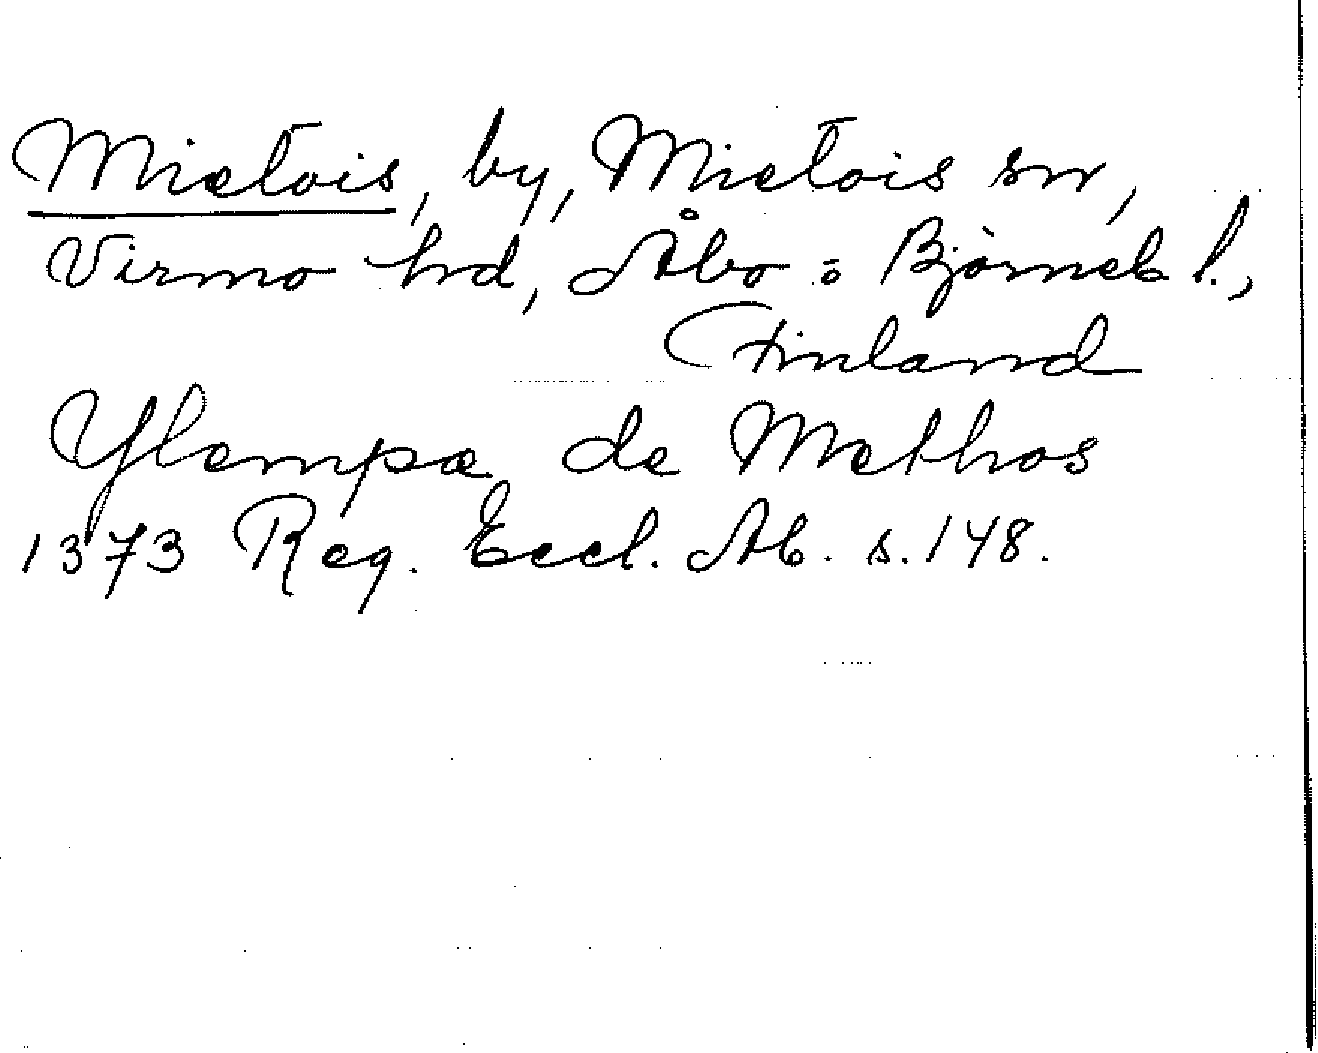 Mietois, by, Mietois sn,
Virmo hd, Åbo o Björneb l.,
Finland
Ylempæ de Methos
1373 Reg. Eccl. Ab. s. 148.